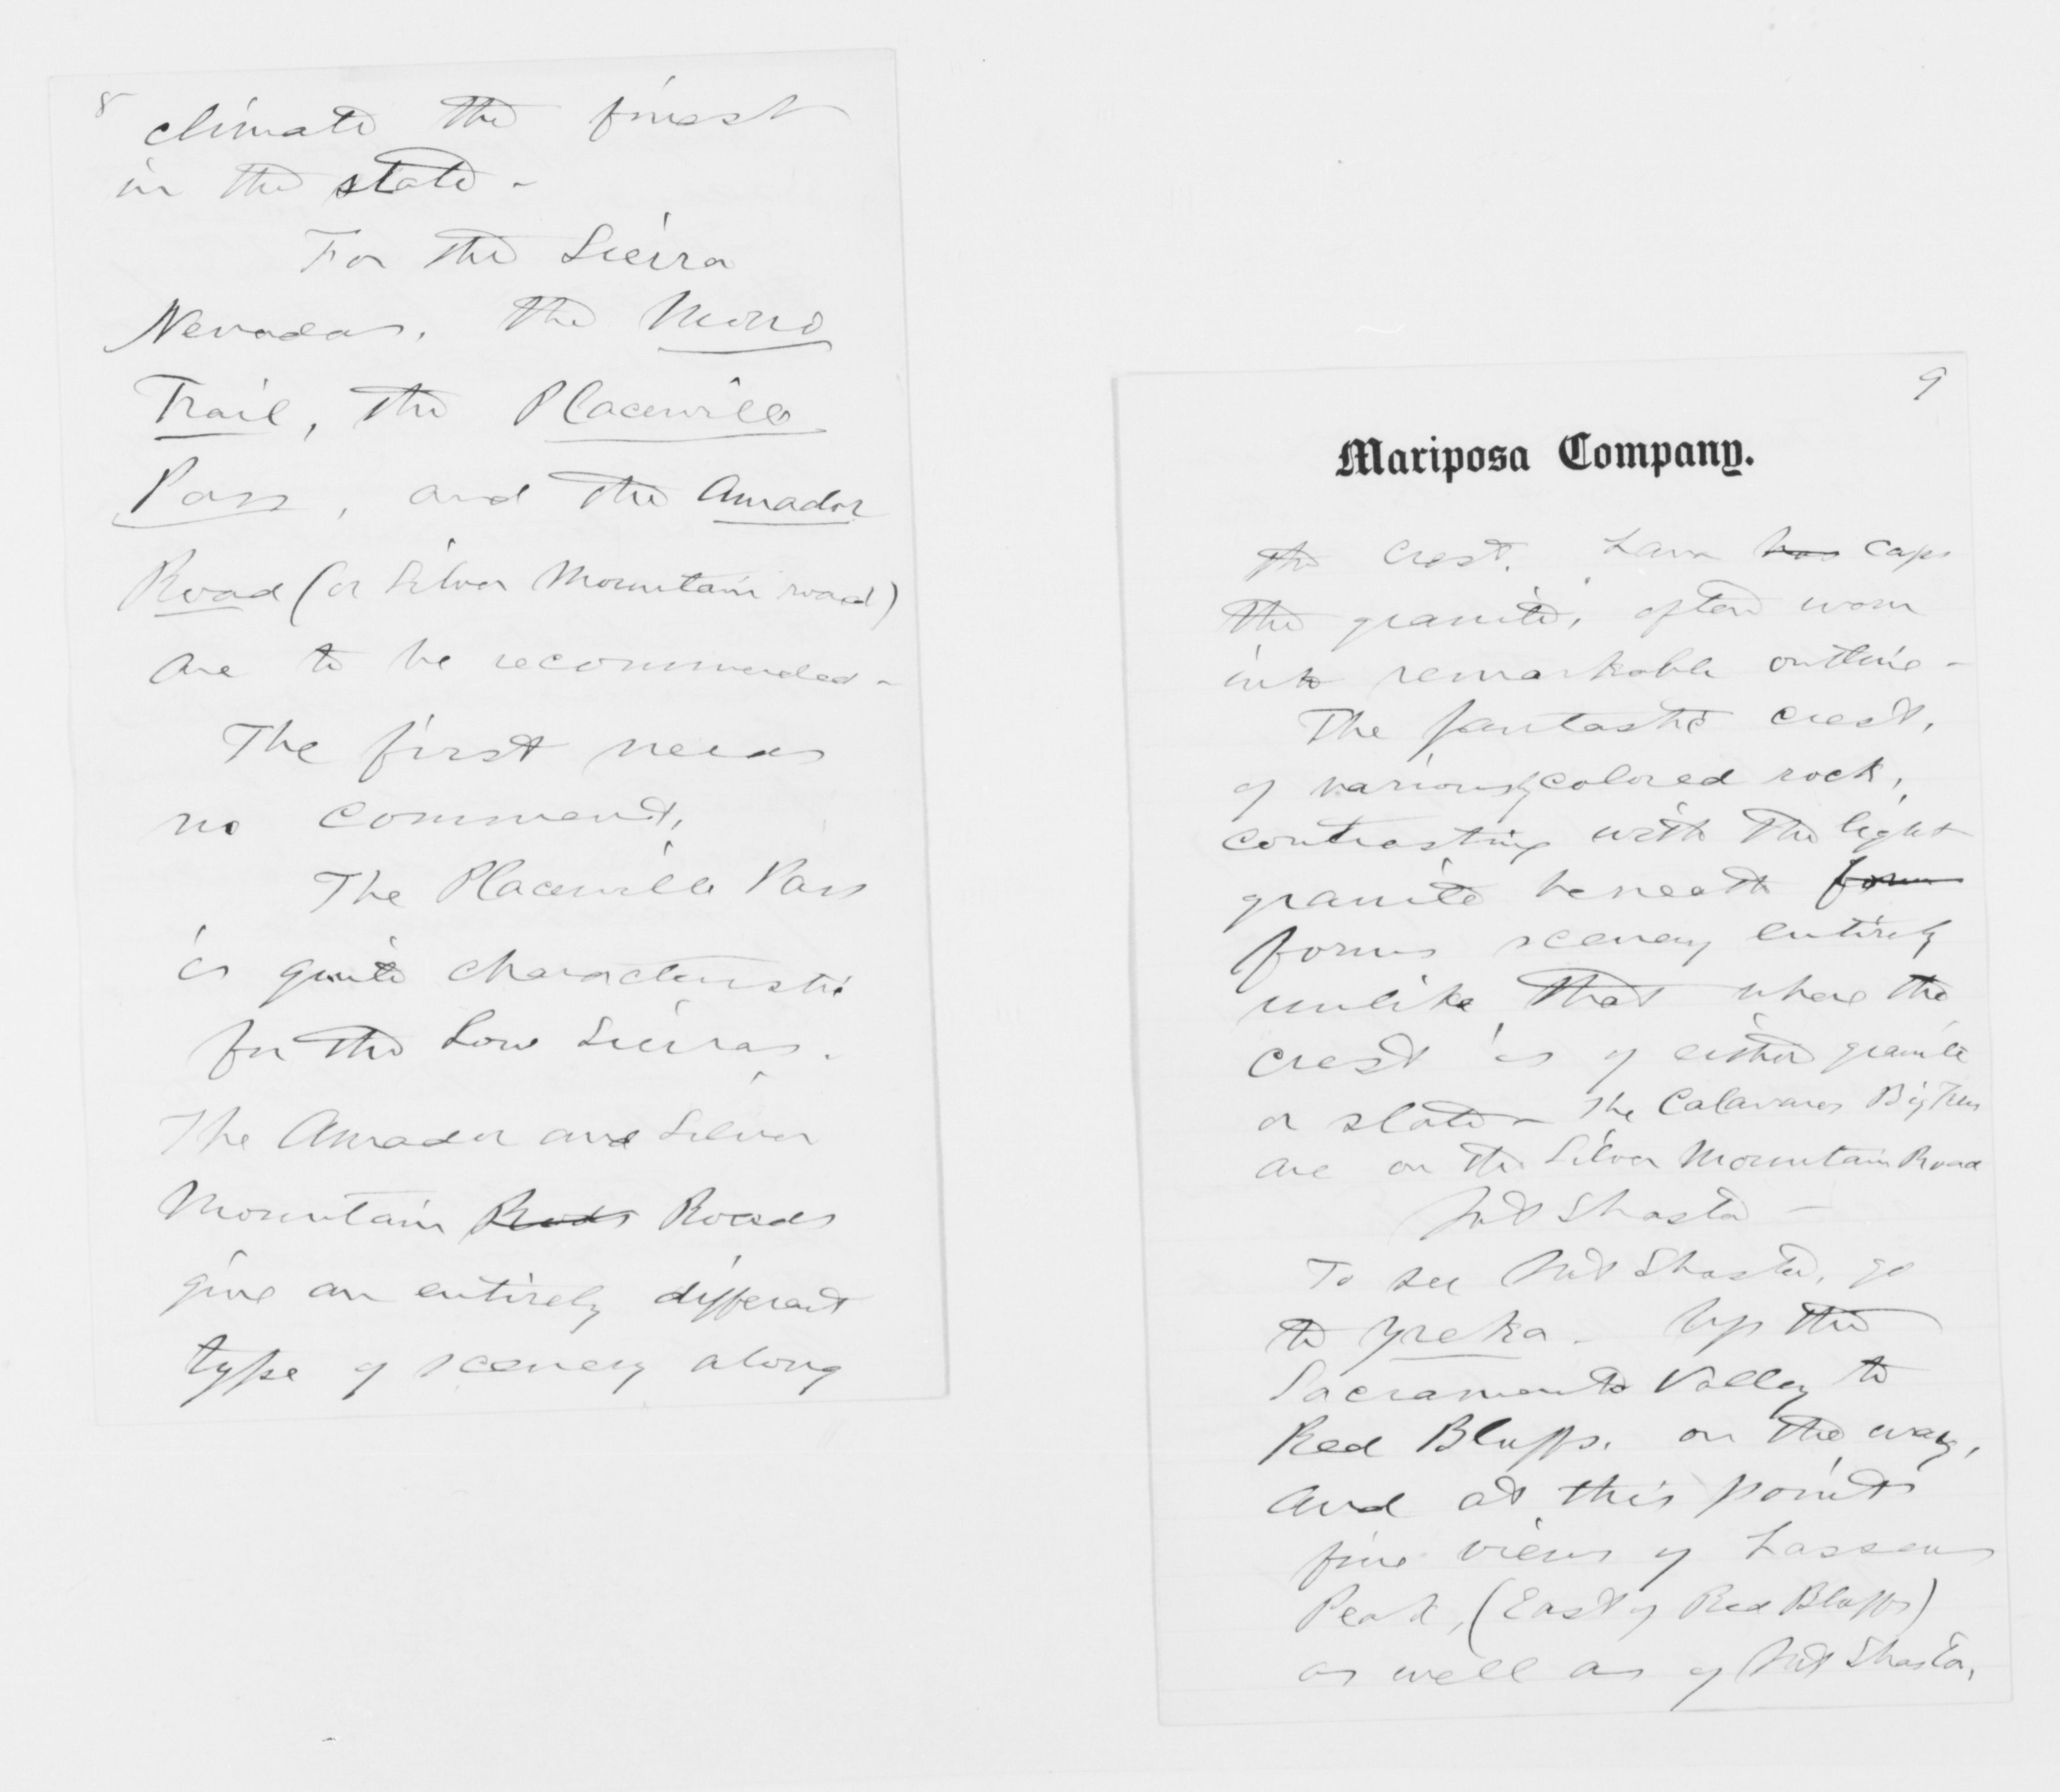 8
climate the finest
in the state -
For the Sierra
Nevadas, the Mono
Trail, the Placerville
Pass, and the Amador
Road (or Silver Mountain road)
are to be recommended -
The first needs
no comment.
The Placerville Pass
is quite characteristic
for the Low Sierras.
The Amador and Silver
Mountain Rods Roads
give an entirely different
type of scenery along
9
Mariposa Company.
the crest. Lava has caps
the granite, often worn
into remarkable outline -
The fantastic crest,
of variously colored rock,
contrasting with the light
granite beneath form
forms scenery entirely
unlike that where the
crest is of either granite
or slate - The Calaveras Big Trees
are on the Silver Mountain Road
Mt Shasta -
To see Mt Shasta, go
to Yreka - Up the
Sacramento Valley to
Red Bluffs. on the way,
and at this point
fine views of Lassens
Peak, (East of Red Bluffs)
as well as of Mt Shasta,